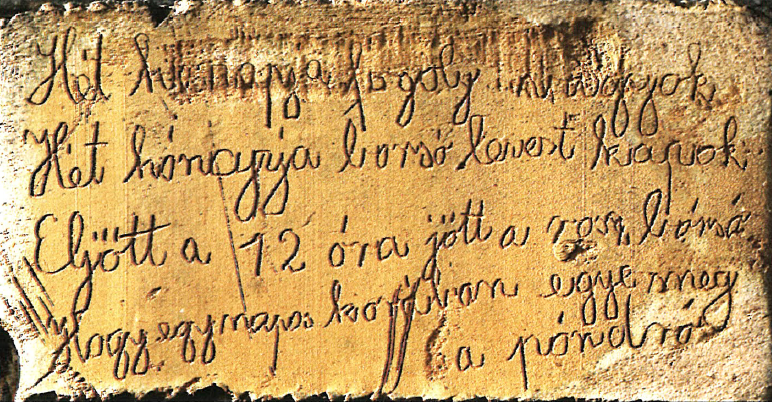 Hét hónapja fogoly vagyok,
Hét hónapja borsó levest kapok.
Eljött a 12 óra jött a bórsó
Hogy egynapos korában egye meg
a póndró